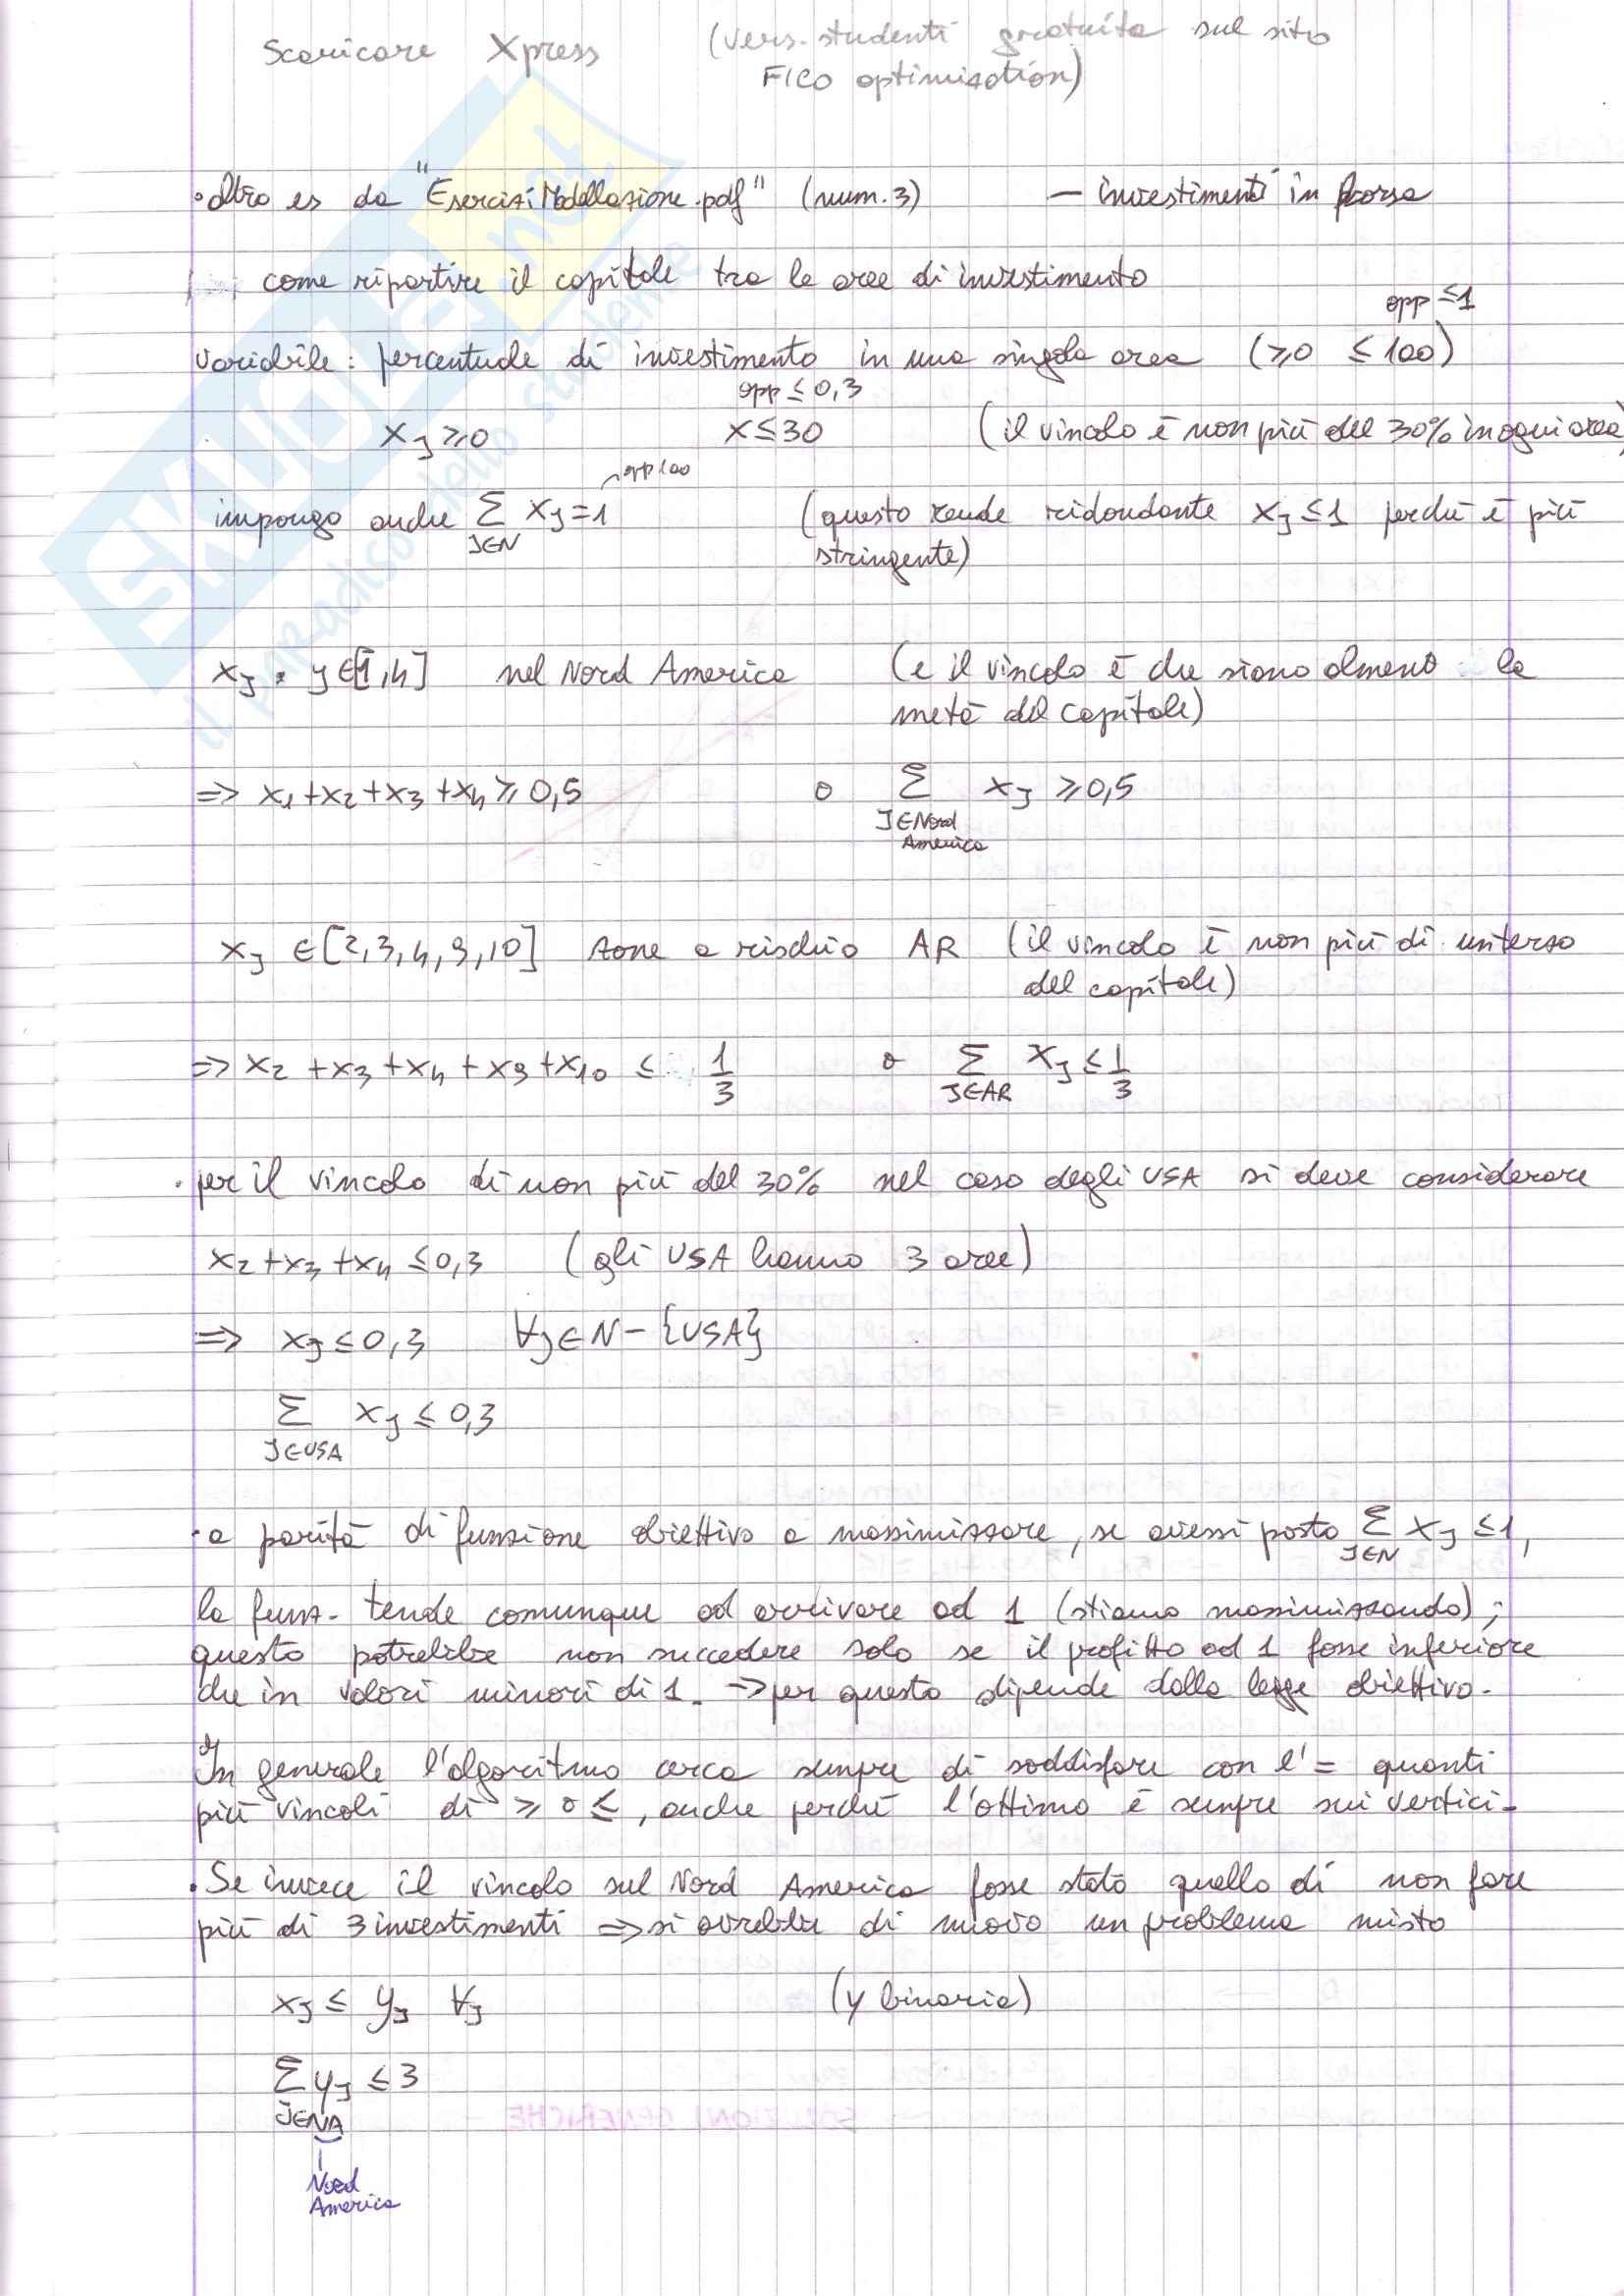 Scaricare Xpress (vers. studenti gratuita sul sito
FICO optimization)
• altro es da "EserciziModellazione.pdf" (num. 3) — investimenti in borsa
come ripartire il capitale tra le aree di investimento
opp ≤1
variabile: percentuale di investimento in una singola area (≥0 ≤100)
opp ≤ 0,3
xJ ≥0 x≤30 (il vincolo è non più del 30% in ogni area)
opp 100
impongo anche Σ xJ=1 (questo rende ridondante xJ ≤1 perché è più
J∈N stringente)
xJ . y∈[1,4] nel Nord America (e il vincolo è che siano almeno la
metà del capitale)
=> x1+x2+x3+x4 ≥ 0,5 o Σ xJ ≥0,5
J∈Nord
America
xJ ∈[2,3,4,9,10] zone a rischio AR (il vincolo è non più di un terzo
del capitale)
=> x2 +x3+x4 +x9+x10 ≤ 1/3 o Σ xJ ≤ 1/3
J∈AR
• per il vincolo di non più del 30% nel caso degli USA si deve considerare
x2+x3+x4 ≤0,3 (gli USA hanno 3 aree)
=> xJ ≤0,3 ∀J∈N-{USA}
Σ xJ ≤ 0,3
J∈USA
• a parità di funzione obiettivo a massimizzare, se avessi posto Σ xJ ≤1,
J∈N
la funz. tende comunque ad arrivare ad 1 (stiamo massimizzando);
questo potrebbe non succedere solo se il profitto ad 1 fosse inferiore
che in valori minori di 1. →per questo dipende dalla legge obiettivo.
In generale l'algoritmo cerca sempre di soddisfare con l' = quanti
più vincoli di ≥ o ≤, anche perché l'ottimo è sempre sui vertici.
• Se invece il vincolo sul Nord America fosse stato quello di non fare
più di 3 investimenti => si avrebbe di nuovo un problema misto
xJ ≤ yJ ∀J (y binaria)
Σ yJ ≤3
J∈NA
Nord
America
SKUOLA.net
il paradiso dello studente